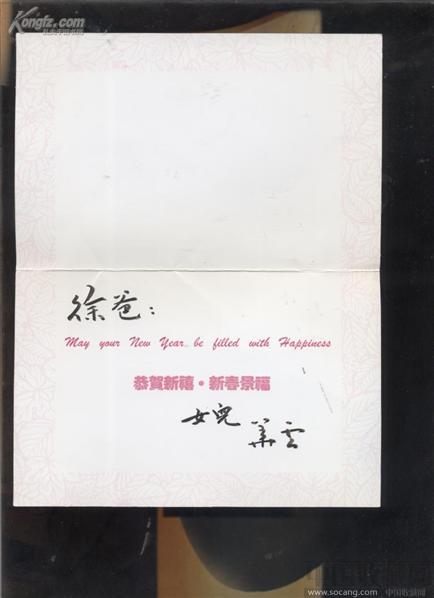 Kongfz.com
孔夫子旧书网
徐爸:
May your New Year.. be filled with Happiness
恭賀新禧·新春景福
女兒
葉雲
www.socang.com 中国收藏网